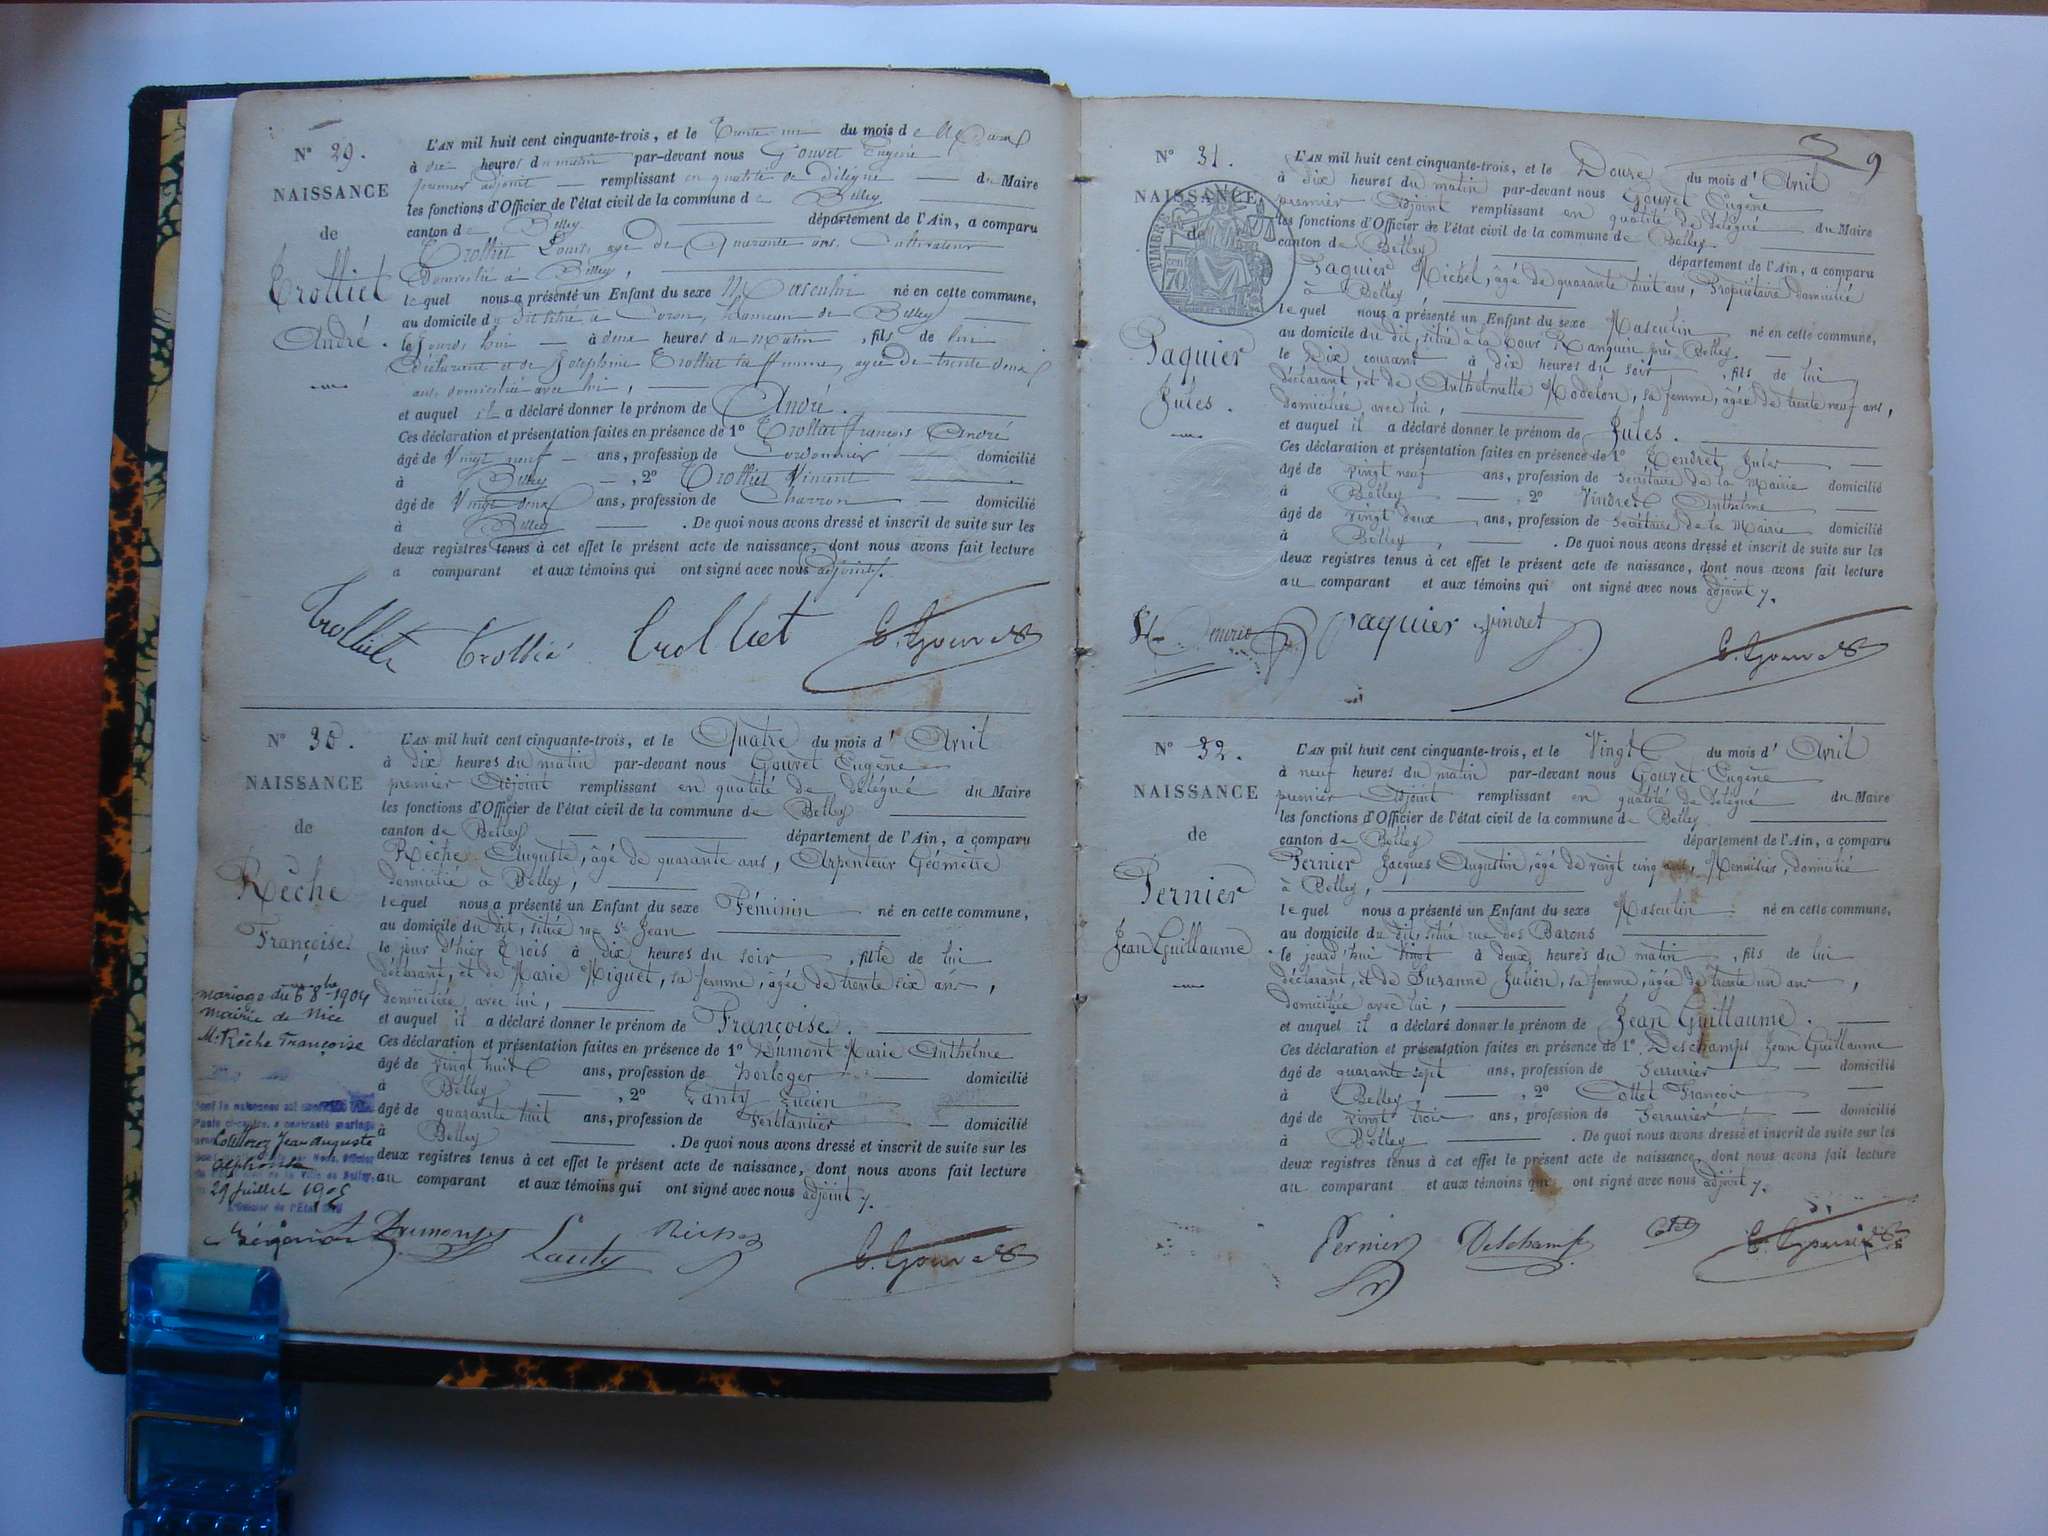 N° 29.
NAISSANCE
de
Trolliet
André.
L'AN mil huit cent cinquante-trois, et le Trente un du mois de Mars
à dix heures du matin par-devant nous Gouvet Eugène
premier adjoint remplissant en qualité de délégué du Maire
les fonctions d'Officier de l'état civil de la commune de Belley
canton de Belley département de l'Ain, a comparu
Trolliet Louis, âgé de Quarante ans, Cultivateur
Domicilié à Belley,
lequel nous a présenté un Enfant du sexe Masculin né en cette commune,
au domicile du dit situé à Coron, hameau de Belley
le jourd'hui à deux heures du matin, fils de lui
Déclarant et de Joséphine Trolliet sa femme, agée de trente deux
ans, domiciliée avec lui,
et auquel il a déclaré donner le prénom de André.
Ces déclaration et présentation faites en présence de 1° Trolliet françois André
âgé de Vingt neuf ans, profession de Cordonnier domicilié
à Belley, 2° Trolliet Vincent
âgé de Vingt deux ans, profession de Charron domicilié
à Belley. De quoi nous avons dressé et inscrit de suite sur les
deux registres tenus à cet effet le présent acte de naissance, dont nous avons fait lecture
a comparant et aux témoins qui ont signé avec nous adjoint.
Trolliet Trollié Trolliet E. Gouvet
N° 30.
NAISSANCE
de
Rêche
Françoise.
mariage du 6 8bre 1904
mairie de Nice
Mlle Rêche Françoise
Jean Auguste
Alphonse
29 Juillet 1905
L'AN mil huit cent cinquante-trois, et le Quatre du mois d'Avril
à dix heures du matin par-devant nous Gouvet Eugène
premier Adjoint remplissant en qualité de délégué du Maire
les fonctions d'Officier de l'état civil de la commune de Belley
canton de Belley département de l'Ain, a comparu
Rêche Auguste, âgé de quarante ans, Arpenteur Géomètre
domicilié à Belley,
lequel nous a présenté un Enfant du sexe Féminin né en cette commune,
au domicile du dit, situé rue St Jean
le jour d'hier trois à dix heures du soir, fille de lui
déclarant, et de Marie Miguet, sa femme, âgée de trente six ans,
domiciliée avec lui,
et auquel il a déclaré donner le prénom de Françoise.
Ces déclaration et présentation faites en présence de 1° Dumont Marie Anthelme
âgé de vingt huit ans, profession de horloger domicilié
à Belley, 2° Lanty Lucien
âgé de quarante huit ans, profession de Ferblantier domicilié
à Belley. De quoi nous avons dressé et inscrit de suite sur les
deux registres tenus à cet effet le présent acte de naissance, dont nous avons fait lecture
au comparant et aux témoins qui ont signé avec nous adjoint.
Dumont Lanty E. Gouvet
9
N° 31.
NAISSANCE
de
TIMBRE
70
Paquier
Jules.
L'AN mil huit cent cinquante-trois, et le Douze du mois d'Avril
à dix heures du matin par-devant nous Gouvet Eugène
premier Adjoint remplissant en qualité de délégué du Maire
les fonctions d'Officier de l'état civil de la commune de Belley
canton de Belley département de l'Ain, a comparu
Paquier Michel, âgé de quarante huit ans, Propriétaire domicilié
à Belley
lequel nous a présenté un Enfant du sexe Masculin né en cette commune,
au domicile du dit, situé à la Cour Manquin près Belley
le Dix courant à dix heures du soir, fils de lui
déclarant, et de Anthelmette Modelon, sa femme, âgée de trente neuf ans,
domiciliée avec lui,
et auquel il a déclaré donner le prénom de Jules.
Ces déclaration et présentation faites en présence de 1° Tendret Jules
âgé de vingt neuf ans, profession de Secrétaire de la Mairie domicilié
à Belley, 2° Vindret Anthelme
âgé de vingt deux ans, profession de Secrétaire de la Mairie domicilié
à Belley. De quoi nous avons dressé et inscrit de suite sur les
deux registres tenus à cet effet le présent acte de naissance, dont nous avons fait lecture
au comparant et aux témoins qui ont signé avec nous adjoint.
Paquier Vindret E. Gouvet
N° 32.
NAISSANCE
de
Pernier
Jean Guillaume.
L'AN mil huit cent cinquante-trois, et le Vingt du mois d'Avril
à neuf heures du matin par-devant nous Gouvet Eugène
premier Adjoint remplissant en qualité de délégué du Maire
les fonctions d'Officier de l'état civil de la commune de Belley
canton de Belley département de l'Ain, a comparu
Pernier Jacques Augustin, âgé de vingt cinq ans, Menuisier, domicilié
à Belley,
lequel nous a présenté un Enfant du sexe Masculin né en cette commune,
au domicile du dit, situé rue des Barons
le jourd'hui vingt à deux heures du matin, fils de lui
déclarant, et de Suzanne Julien, sa femme, âgée de trente un ans,
domiciliée avec lui,
et auquel il a déclaré donner le prénom de Jean Guillaume.
Ces déclaration et présentation faites en présence de 1° Deschamps Jean Guillaume
âgé de quarante sept ans, profession de Serrurier domicilié
à Belley, 2° Collet François
âgé de vingt trois ans, profession de Serrurier domicilié
à Belley. De quoi nous avons dressé et inscrit de suite sur les
deux registres tenus à cet effet le présent acte de naissance, dont nous avons fait lecture
au comparant et aux témoins qui ont signé avec nous adjoint.
Pernier Deschamps E. Gouvet